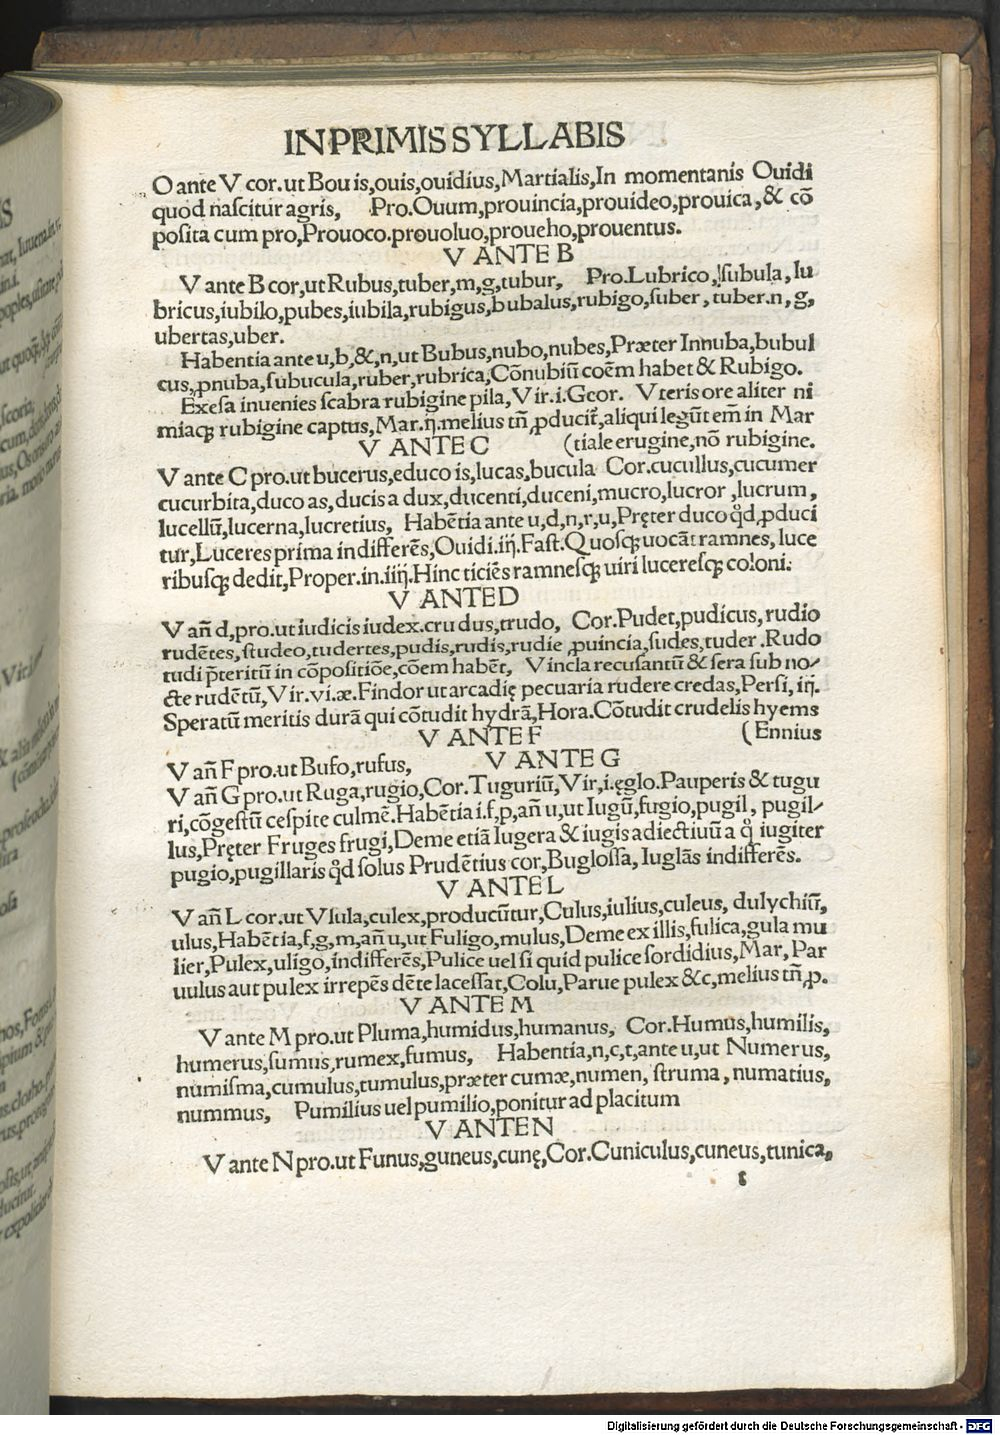 IN PRIMIS SYLLABIS
O ante V cor.ut Bouis,ouis,ouidius,Martialis,In momentanis Ouidi
quod nascitur agris, Pro.Ouum,prouincia,prouideo,prouica,& cō
posita cum pro,Prouoco.prouoluo,proueho,prouentus.
V ANTE B
V ante B cor,ut Rubus,tuber,m,g,tubur, Pro.Lubrico,ſubula,lu
bricus,iubilo,pubes,iubila,rubigus,bubalus,rubigo,ſuber,tuber.n,g,
ubertas,uber.
Habentia ante u,b,&,n,ut Bubus,nubo,nubes,Præter Innuba,bubul
cus,ꝓnuba,ſubucula,ruber,rubrica,Cōnubiū coēm habet & Rubigo.
Exeſa inuenies ſcabra rubigine pila,Vir.i.Geor. Vteris ore aliter ni
miaqꝫ rubigine captus,Mar.ij.melius tñ ꝓducit̃,aliqui legūt em̄ in Mar
V ANTE C (tiale erugine,nō rubigine.
V ante C pro.ut bucerus,educo is,lucas,bucula Cor.cucullus,cucumer
cucurbita,duco as,ducis a dux,ducenti,duceni,mucro,lucror,lucrum,
lucellū,lucerna,lucretius, Habētia ante u,d,n,r,u,Pręter duco qd̃ ꝓduci
tur,Luceres prima indifferēs,Ouidi.iij.Faſt.Quoſqꝫ uocāt ramnes, luce
ribuſqꝫ dedit,Proper.in.iiij.Hinc ticiēs ramneſqꝫ uiri lucereſqꝫ coloni.
V ANTE D
V añ d,pro.ut iudicis iudex.crudus,trudo, Cor.Pudet,pudicus,rudio
rudētes,ſtudeo,tudertes,pudis,rudis,rudie ꝓuincia,ſudes,tuder.Rudo
tudi p̃teritū in cōpoſitiōe,cōem habēt, Vincla recuſantū & ſera ſub no-
cte rudētū,Vir.vi.æ.Findor ut arcadię pecuaria rudere credas,Perſi,iij.
Speratū meritis durā qui cōtudit hydrā,Hora.Cōtudit crudelis hyems
V ANTE F (Ennius
V añ F pro.ut Bufo,rufus, V ANTE G
V añ G pro.ut Ruga,rugio,Cor.Tuguriū,Vir,i.ęglo.Pauperis & tugu
ri,cōgeſtū ceſpite culmē.Habētia i.f,p,añ u,ut Iugū,fugio,pugil, pugil-
lus,Pręter Fruges frugi,Deme etiā Iugera & iugis adiectiuū a q̊ iugiter
pugio,pugillaris qd̃ ſolus Prudētius cor,Bugloſſa, Iuglās indifferēs.
V ANTE L
V añ L cor.ut Vſula,culex,producūtur,Culus,iulius,culeus, dulychiū,
ulus,Habētia,f,g,m,añ u,ut Fuligo,mulus,Deme ex illis,fulica,gula mu
lier,Pulex,uligo,indifferēs,Pulice uel ſi quid pulice ſordidius,Mar,Par
uulus aut pulex irrepēs dēte laceſſat,Colu,Parue pulex &c,melius tñ ꝓ.
V ANTE M
V ante M pro.ut Pluma,humidus,humanus, Cor.Humus,humilis,
humerus,ſumus,rumex,fumus, Habentia,n,c,t,ante u,ut Numerus,
numiſma,cumulus,tumulus,præter cumæ,numen, ſtruma, numatius,
nummus, Pumilius uel pumilio,ponitur ad placitum
V ANTE N
V ante N pro.ut Funus,guneus,cunę,Cor.Cuniculus,cuneus,tunica,
Digitalisierung gefördert durch die Deutsche Forschungsgemeinschaft - DFG